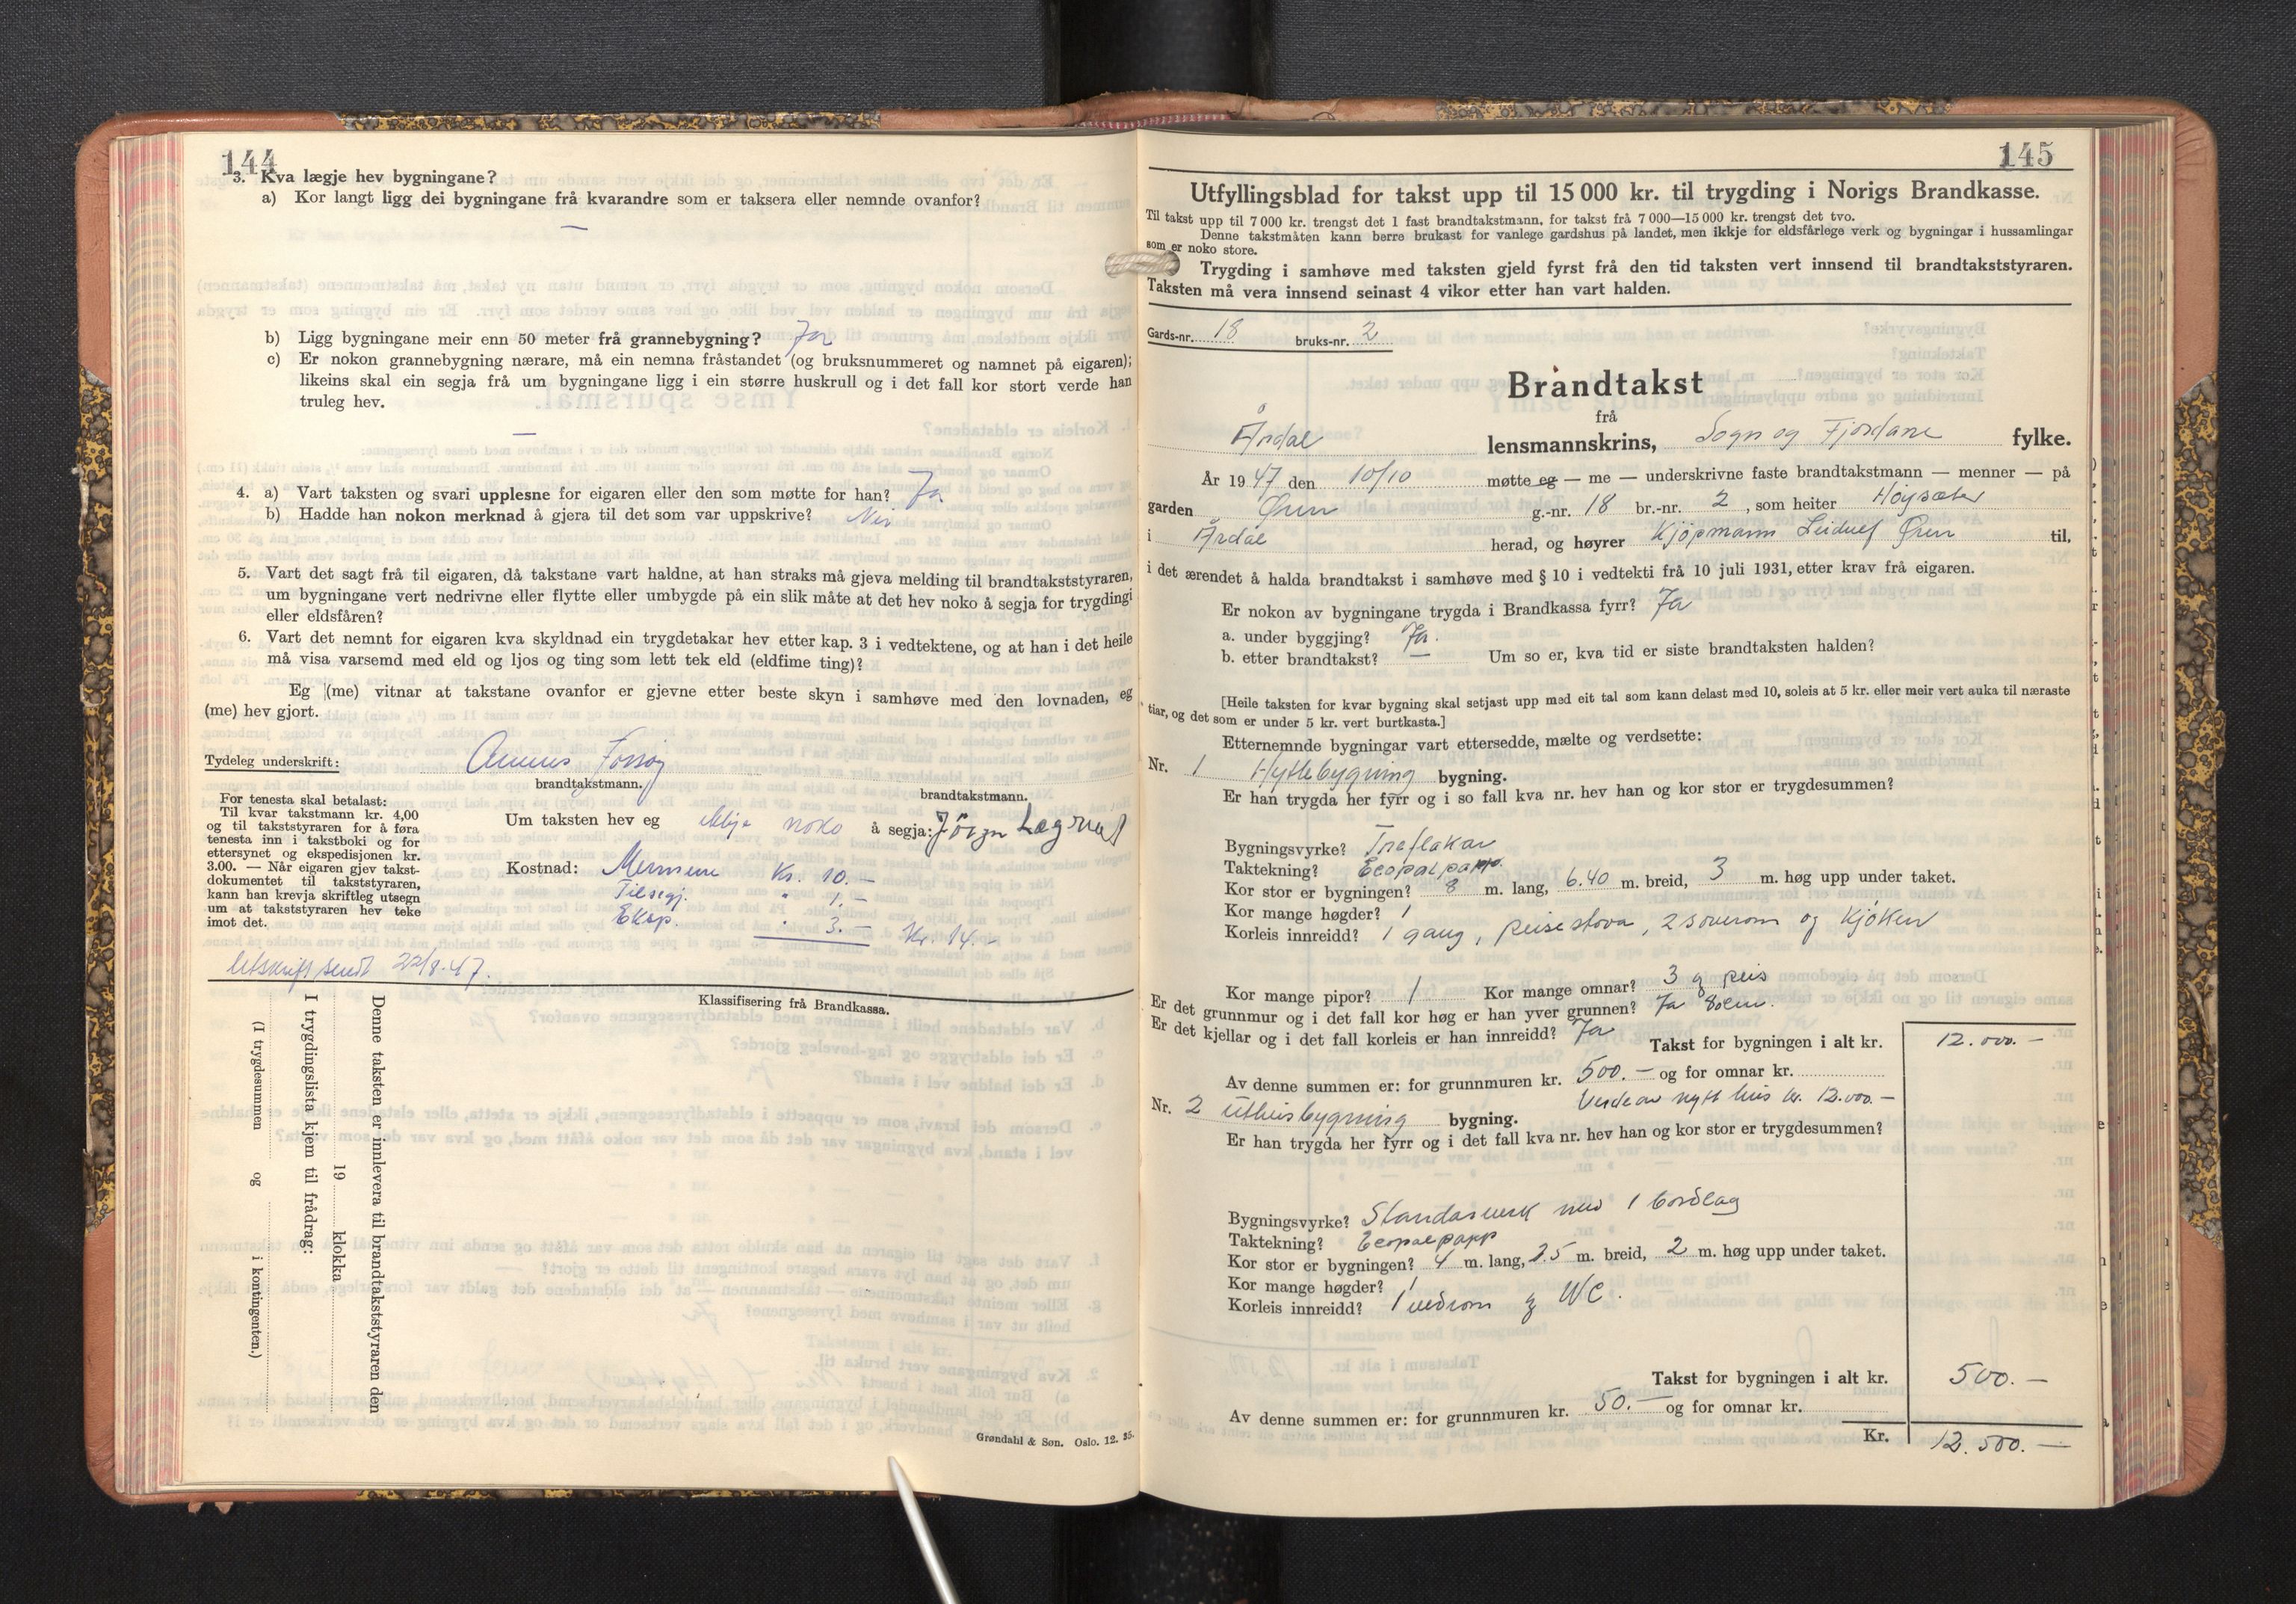 144
3. Kva lægje hev bygningane?
a) Kor langt ligg dei bygningane frå kvarandre som er taksera eller nemnde ovanfor?
—
b) Ligg bygningane meir enn 50 meter frå grannebygning? Ja
c) Er nokon grannebygning nærare, må ein nemna fråstandet (og bruksnummeret og namnet på eigaren);
likeins skal ein segja frå um bygningane ligg i ein større huskrull og i det fall kor stort verde han
truleg hev.
—
4. a) Vart taksten og svari upplesne for eigaren eller den som møtte for han? Ja
b) Hadde han nokon merknad å gjera til det som var uppskrive? Nei
5. Vart det sagt frå til eigaren, då takstane vart haldne, at han straks må gjeva melding til brandtakststyraren,
um bygningane vert nedrivne eller flytte eller umbygde på ein slik måte at det hev noko å segja for trygdingi
eller eldsfåren?
6. Vart det nemnt for eigaren kva skyldnad ein trygdetakar hev etter kap. 3 i vedtektene, og at han i det heile
må visa varsemd med eld og ljos og ting som lett tek eld (eldfime ting)?
Eg (me) vitnar at takstane ovanfor er gjevne etter beste skyn i samhøve med den lovnaden, eg
(me) hev gjort.
Tydeleg underskrift:
brandtakstmann. brandtakstmann.
For tenesta skal betalast:
Til kvar takstmann kr. 4,00
og til takststyraren for å føra
tenesta inn i takstboki og for
ettersynet og ekspedisjonen kr.
3.00. — Når eigaren gjev takst-
dokumentet til takststyraren,
kann han krevja skriftleg utsegn
um at takststyraren hev teke
imot det.
Um taksten hev eg ikkje noko å segja: Jörgn Lægreid
Kostnad: Mennene Kr. 10.—
Tilsegj. " 1.—
Eksp. " 3.— Kr. 14.—
Utskrift sendt 22/8.47.
Klassifisering frå Brandkassa.
Denne taksten er innlevera til brandtakststyraren den
19 klokka
I trygdingslista kjem til frådrag:
(I trygdesummen og i kontingenten.)
Grøndahl & Søn. Oslo. 12. 35.
145
Utfyllingsblad for takst upp til 15 000 kr. til trygding i Norigs Brandkasse.
Til takst upp til 7 000 kr. trengst det 1 fast brandtakstmann, for takst frå 7 000—15 000 kr. trengst det tvo.
Denne takstmåten kann berre brukast for vanlege gardshus på landet, men ikkje for eldsfårlege verk og bygningar i hussamlingar
som er noko store.
Trygding i samhøve med taksten gjeld fyrst frå den tid taksten vert innsend til brandtakststyraren.
Taksten må vera innsend seinast 4 vikor etter han vart halden.
Gards-nr. 18 bruks-nr. 2
Brandtakst
frå
Årdal lensmannskrins, Sogn og Fjordane fylke.
År 1947 den 10/10 møtte eg — me — underskrivne faste brandtakstmann — menner — på
garden Øren g.-nr. 18 br.-nr. 2, som heiter Høysæter
i Årdal herad, og høyrer Kjøpmann Leidulf Øren til,
i det ærendet å halda brandtakst i samhøve med § 10 i vedtekti frå 10 juli 1931, etter krav frå eigaren.
Er nokon av bygningane trygda i Brandkassa fyrr? Ja
a. under byggjing? Ja.
b. etter brandtakst? — Um so er, kva tid er siste brandtaksten halden?
[Heile taksten for kvar bygning skal setjast upp med eit tal som kann delast med 10, soleis at 5 kr. eller meir vert auka til næraste
tiar, og det som er under 5 kr. vert burtkasta.]
Etternemnde bygningar vart ettersedde, mælte og verdsette:
Nr. 1 Hyttebygning bygning.
Er han trygda her fyrr og i so fall kva nr. hev han og kor stor er trygdesummen?
Bygningsvyrke? Treflakar
Taktekning? Ecopalpapp.
Kor stor er bygningen? 8 m. lang, 6.40 m. breid, 3 m. høg upp under taket.
Kor mange høgder? 1
Korleis innreidd? 1 gang, peisestova, 2 soverom og kjøken
Kor mange pipor? 1 Kor mange omnar? 3 og peis
Er det grunnmur og i det fall kor høg er han yver grunnen? Ja 80cm.
Er det kjellar og i det fall korleis er han innreidd? Ja
Takst for bygningen i alt kr. 12.000.—
Av denne summen er: for grunnmuren kr. 500.— og for omnar kr.
Verde av nytt hus kr. 12.000.—
Nr. 2 Uthusbygning bygning.
Er han trygda her fyrr og i det fall kva nr. hev han og kor stor er trygdesummen?
Bygningsvyrke? Standarverk med 1 bordlag
Taktekning? Ecopalpapp
Kor stor er bygningen? 4 m. lang, 2.5 m. breid, 2 m. høg upp under taket.
Kor mange høgder? 1
Korleis innreidd? 1 vedrom og WC.
Takst for bygningen i alt kr. 500.—
Av denne summen er: for grunnmuren kr. 50.— og for omnar kr.
Kr. 12.500.—